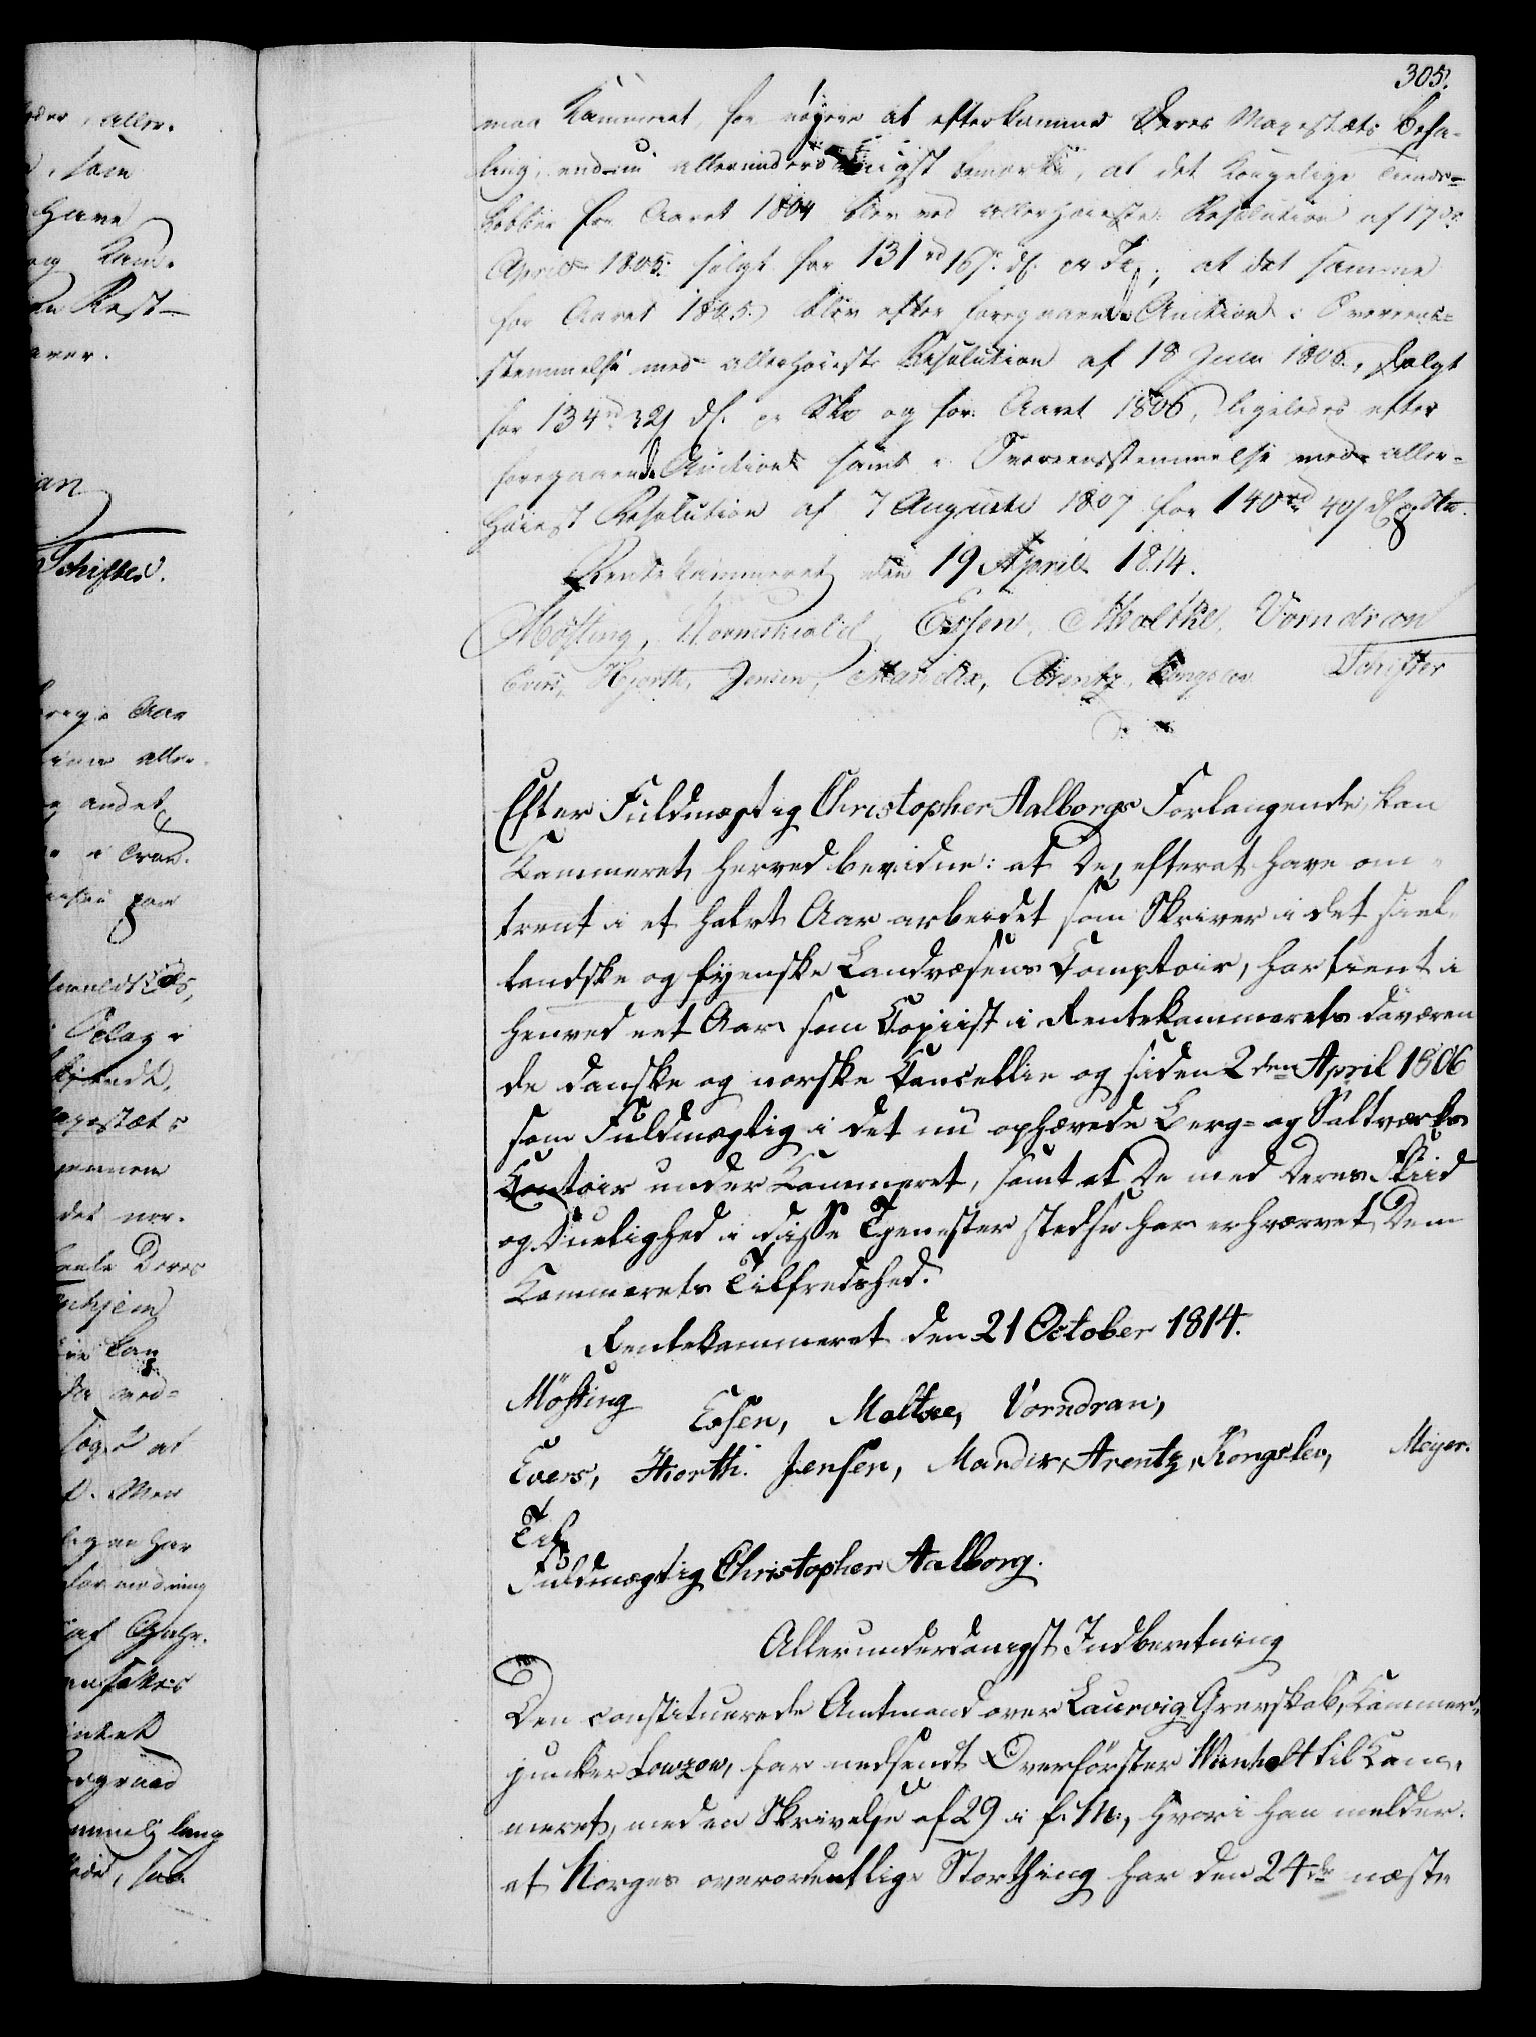 305.
maa Kammeret, for nøjere at efterkomme Deres Majestæts Befa-
ling, endnu allerunderdanigst bemærke, at det Kongelige Tiende-
kobber for Aaret 1804 blev ved allerhøieste Resolution af 17de
April 1805. solgt for 131 rd 16 s. d.C. pr Skp; at det samme
for Aaret 1805. blev efter foregaaende Auction i Overeens-
stemmelse med allerhøieste Resolution af 18 Juni 1806., solgt
for 134 rd 32 s d.C. pr Skp og for Aaret 1806, ligeledes efter
foregaaende Auction samt i Overeensstemmelse med aller-
høiest Resolution af 7 Augusti 1807 for 140 rd 40 s d.C. pr Skp.
Rentekammeret den 19 April 1814.
Mösting, Wormskiold, Essen, Moltke, Vorndran
Evers, Hjorth, Jensen, Mandix, Arentz, Kongslev Schifter
Efter Fuldmægtig Christopher Aalborgs Forlangende, kan
Kammeret herved bevidne: at De, efterat have om-
trent i et halvt Aar arbeidet som Skriver i det siel-
landske og fyenske Landvæsens Comptoir, har tient i
henved eet Aar som Copiist i Rentekammerets daværen
de danske og norske Cancellie og siden 2den April 1806
som Fuldmægtig i det nu ophævede Berg- og Saltværks
Contoir under Kammeret, samt at De med Deres Fliid
og Duelighed i disse Tjenester stedse har erhvervet Dem
Kammerets Tilfredshed.
Rentekammeret den 21 October 1814.
Mösting Essen, Moltke, Vorndran,
Evers, Hiorth. Jensen, Mandix, Arentz, Kongslev, Meyer.
Til
Fuldmægtig Christopher Aalborg.
Allerunderdanigst Indberetning
Den constituerede Amtmand over Laurvig Grevskab, Kammer-
junker Lowzow, har nedsendt Overførster Wanholt til Kam-
meret, med en Skrivelse af 29 i f. M., hvori han melder.
at Norges overordentlige Storthing har den 24de næst